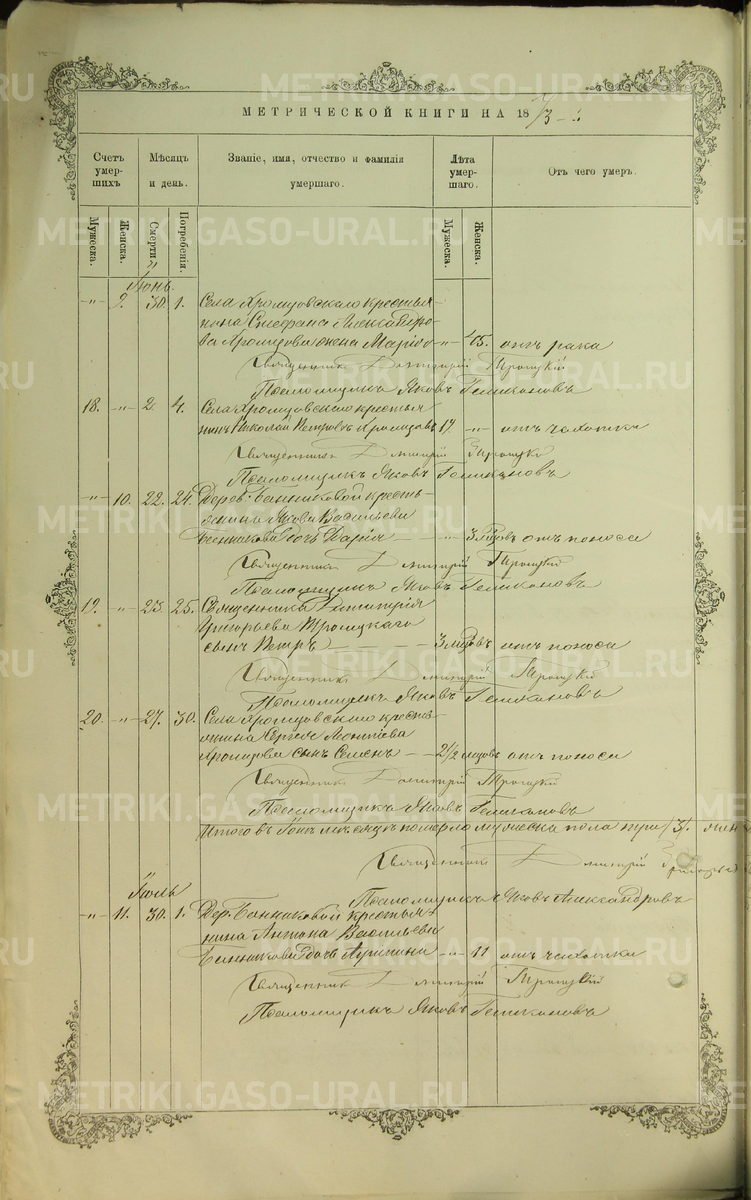 МЕТРИЧЕСКОЙ КНИГИ НА 18
Счетъ умер- шихъ
Мѣсяцъ и день.
Званіе, имя, отчество и фамилія умершаго.
Лѣта умер- шаго.
Отъ чего умеръ.
Мужеска.
Женска.
Смерти.
Погребенія.
Мужеска.
Женска.
Іюнь
30. 1. Села Хромцовскаго крестья-
нина Стефана Александро-
ва Хромцова жена Марія 65. отъ рака
Священникъ Димитрій Троицкій
Псаломщикъ Яковъ
18. 2. 4. Села Хромцовскаго крестья
нинъ Николай Петровъ Хромцовъ 17. отъ чахотки
Священникъ Димитрій Троицкій
Псаломщикъ Яковъ
10. 22. 24. Дерев. Банниковой кресть-
янина Якова Васильева
Банникова дочь Дарія отъ поноса
Священникъ Димитрій Троицкій
Псаломщикъ Яковъ
19. 23. 25. Священника Димитрія
Григорьева Троицкаго
сынъ Петръ отъ поноса
Священникъ Димитрій Троицкій
Псаломщикъ Яковъ
20. 27. 30. Села Хромцовскаго крестья
нина Сергѣя Леонтіева
Хромцова сынъ Семенъ 2 1/2 отъ поноса
Священникъ Димитрій Троицкій
Псаломщикъ Яковъ
Итого въ Іюнѣ мѣсяцѣ померло мужеска пола три /3/.
Священникъ Димитрій Троицкій
Псаломщикъ Яковъ Александровъ
Іюль
11. 30. 1. Дер. Банниковой крестья-
нина Антона Васильева
Банникова дочь 11 отъ чахотки
Священникъ Димитрій Троицкій
Псаломщикъ Яковъ
METRIKI.GASO-URAL.RU